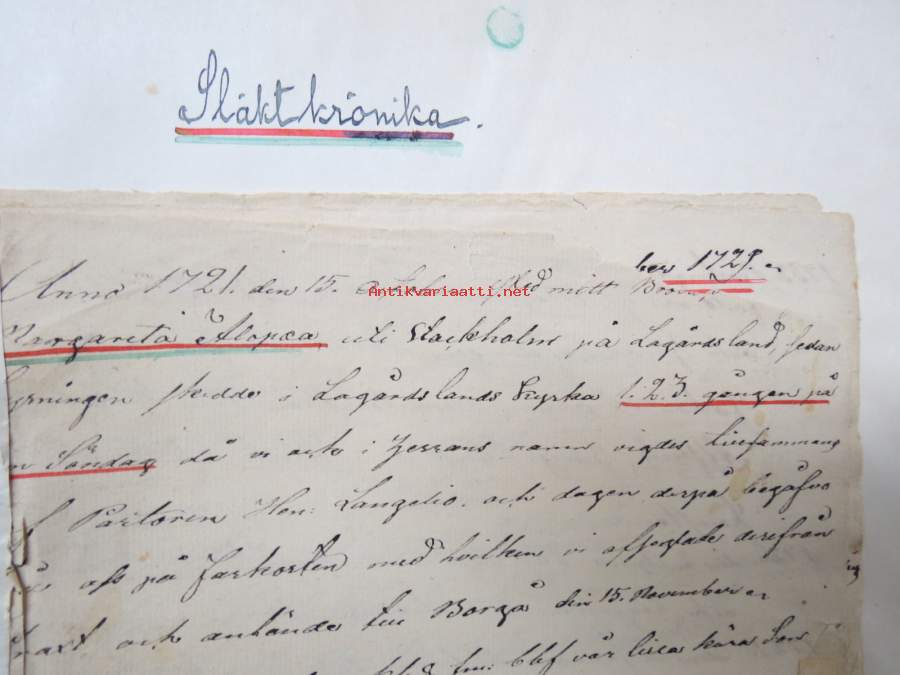 Släktkrönika.
ber 1729.
Anno 1721. den 15. mitt
Margareta Alopæa uti Stackholm på Lagårdsland, sedan
Lysningen skedde i Lagårdslands Kyrka 1.2.3. gången på
en Söndag då vi och i Herrans namn vigdes tillsammans
af Pastoren Hen: Langelio. och dagen derpå begåfvo
vi oss på farkosten med hvilken vi afseglade derifrån
och anlände till Borgå den 15. November
vår lilla kära Son
Antikvariaatti.net